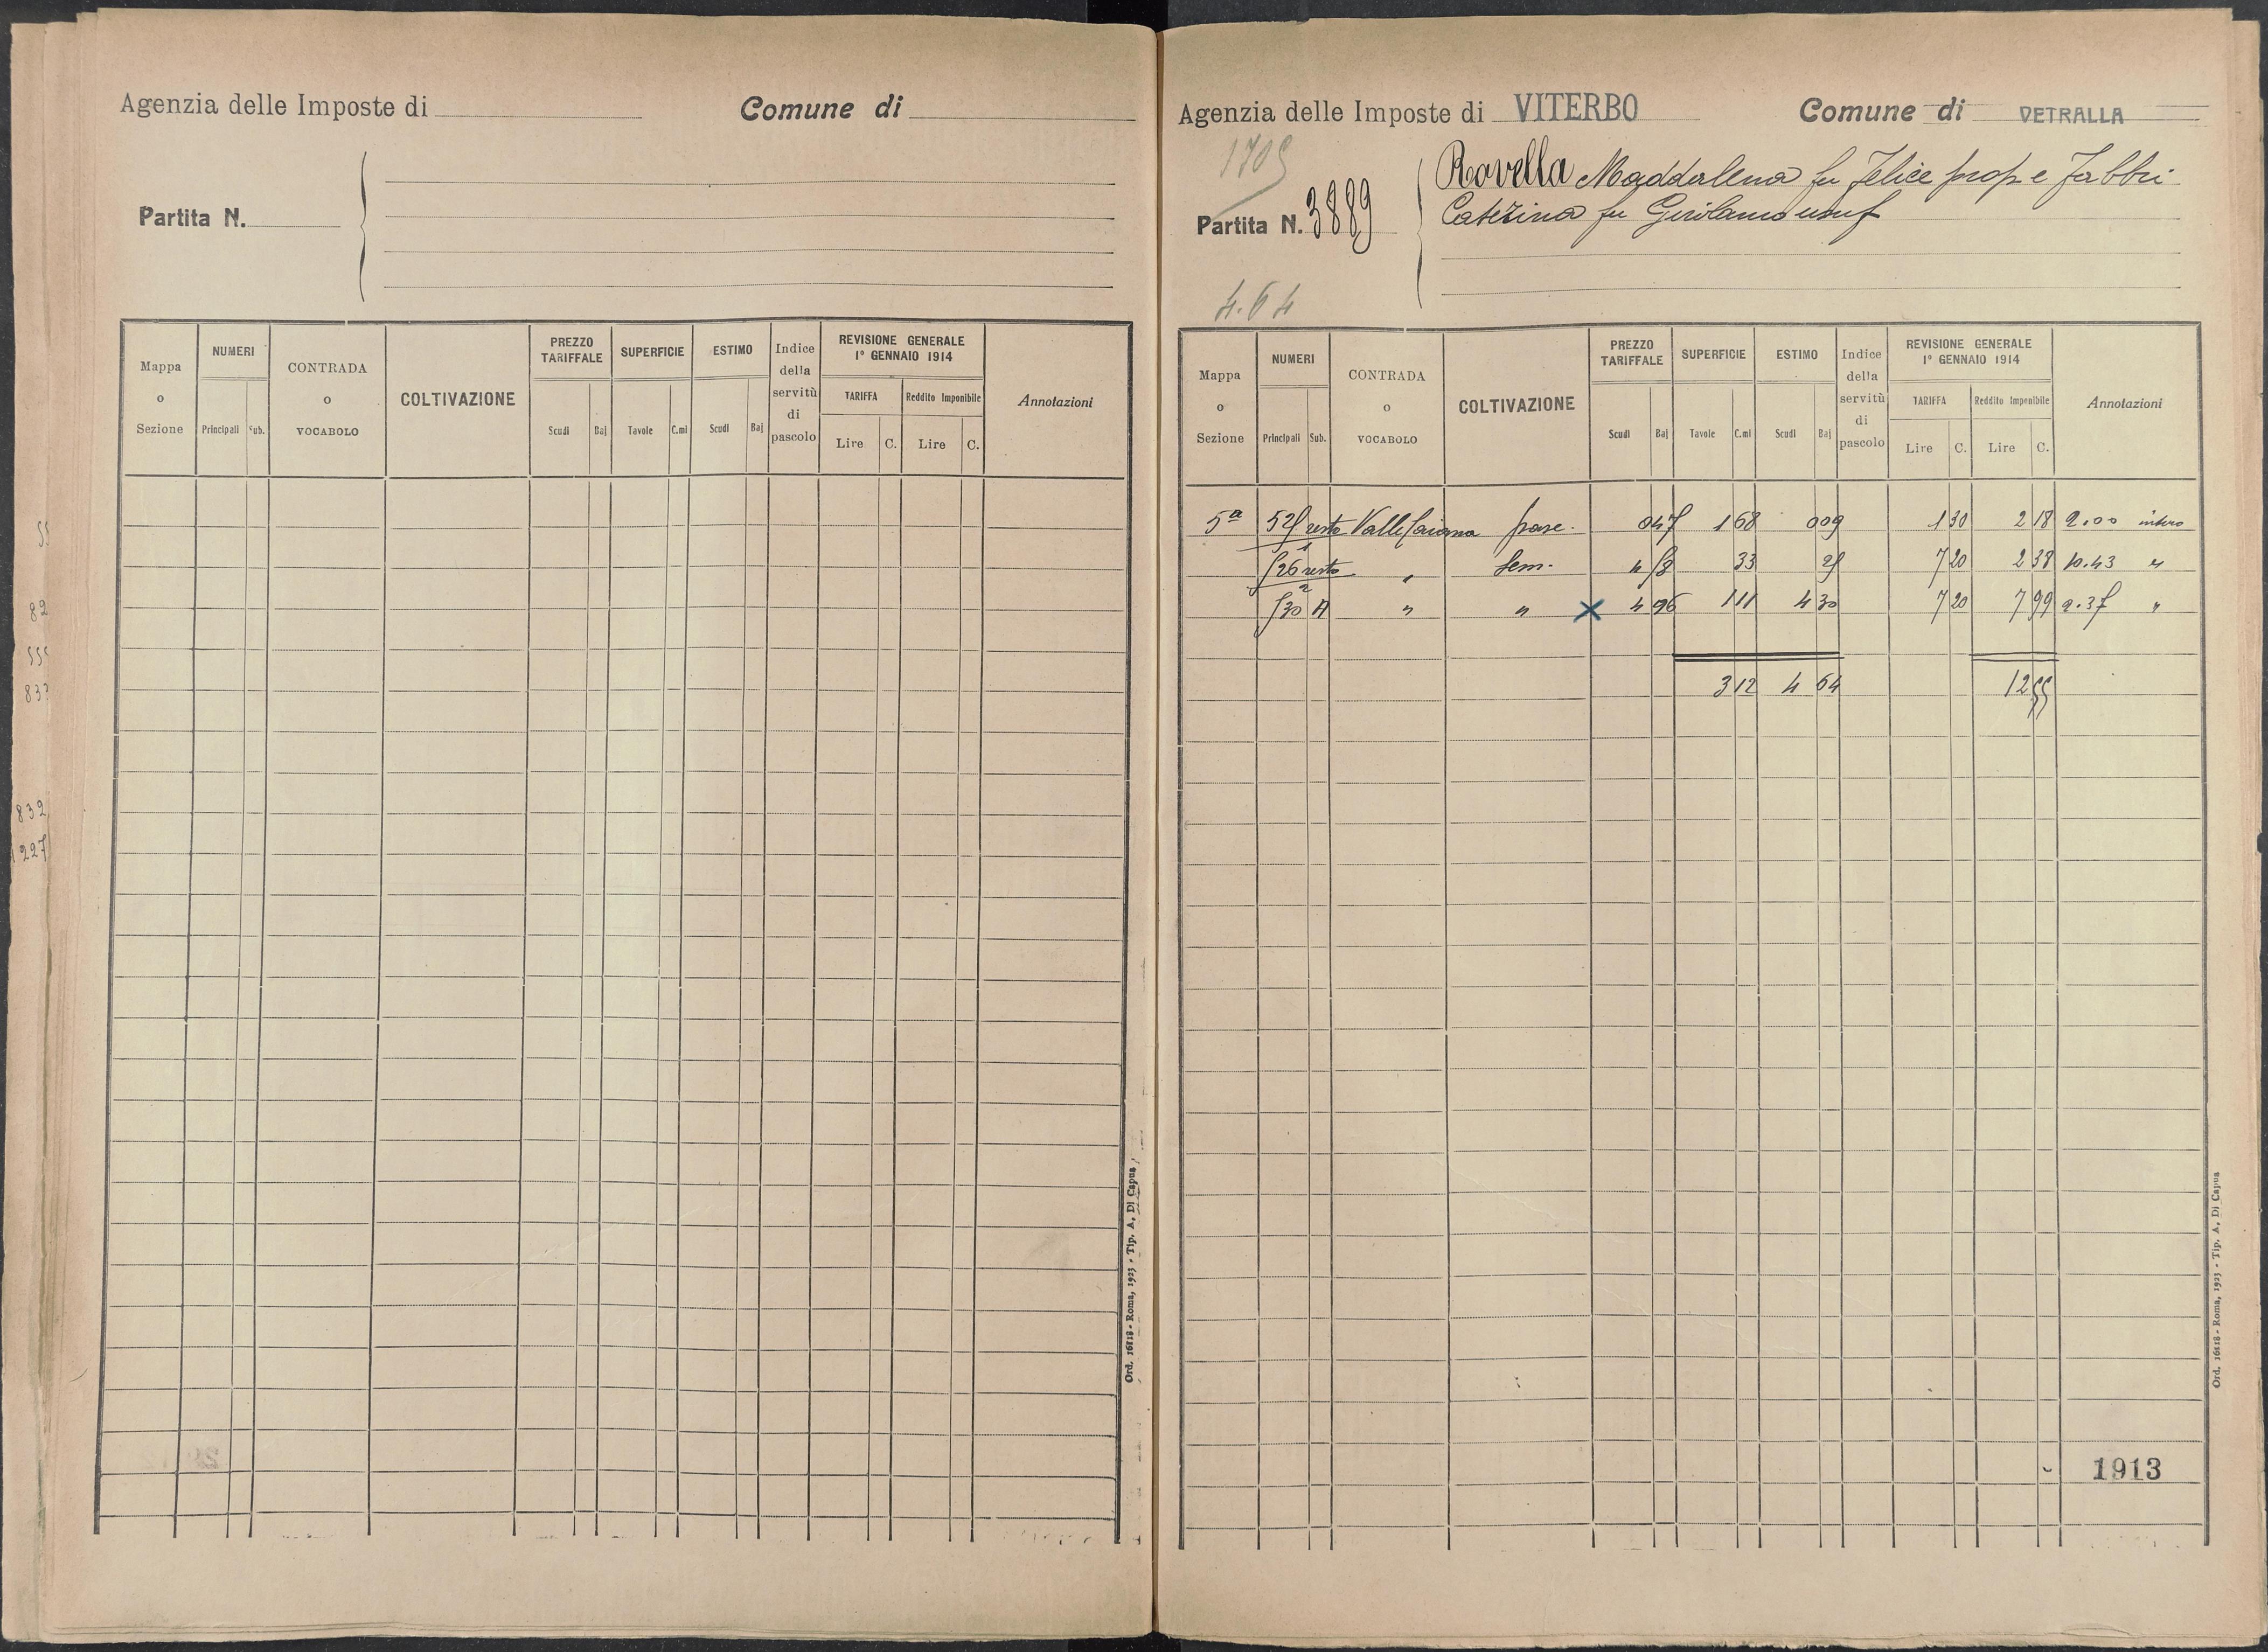 Agenzia delle Imposte di
Comune di
Partita N.
Mappa o Sezione
NUMERI
Principali
Sub.
CONTRADA o VOCABOLO
COLTIVAZIONE
PREZZO TARIFFALE
Scudi
Baj
SUPERFICIE
Tavole
C.mi
ESTIMO
Scudi
Baj
Indice della servitù di pascolo
REVISIONE GENERALE
1° GENNAIO 1914
TARIFFA
Reddito Imponibile
Lire
C.
Lire
C.
Annotazioni
Ord. 16118 - Roma, 1923 - Tip. A. Di Capua
82
832
1227
Agenzia delle Imposte di VITERBO
Comune di VETRALLA
1705
Partita N. 3889
Rovella Maddalena fu Felice prop e Fabbri
Caterina fu Girolamo usuf
4.64
Mappa o Sezione
NUMERI
Principali
Sub.
CONTRADA o VOCABOLO
COLTIVAZIONE
PREZZO TARIFFALE
Scudi
Baj
SUPERFICIE
Tavole
C.mi
ESTIMO
Scudi
Baj
Indice della servitù di pascolo
REVISIONE GENERALE
1° GENNAIO 1914
TARIFFA
Reddito Imponibile
Lire
C.
Lire
C.
Annotazioni
5ª resto Valle pasc. 1 68 0 09 1 30 2 18 2.00 intero
1
526 resto " Sem. 33 7 20 2 38 10.43 "
2
530 A " " X 4 96 1 11 4 30 7 20 7 99 "
3 12 4 64 12 55
1913
Ord. 16118 - Roma, 1923 - Tip. A. Di Capua